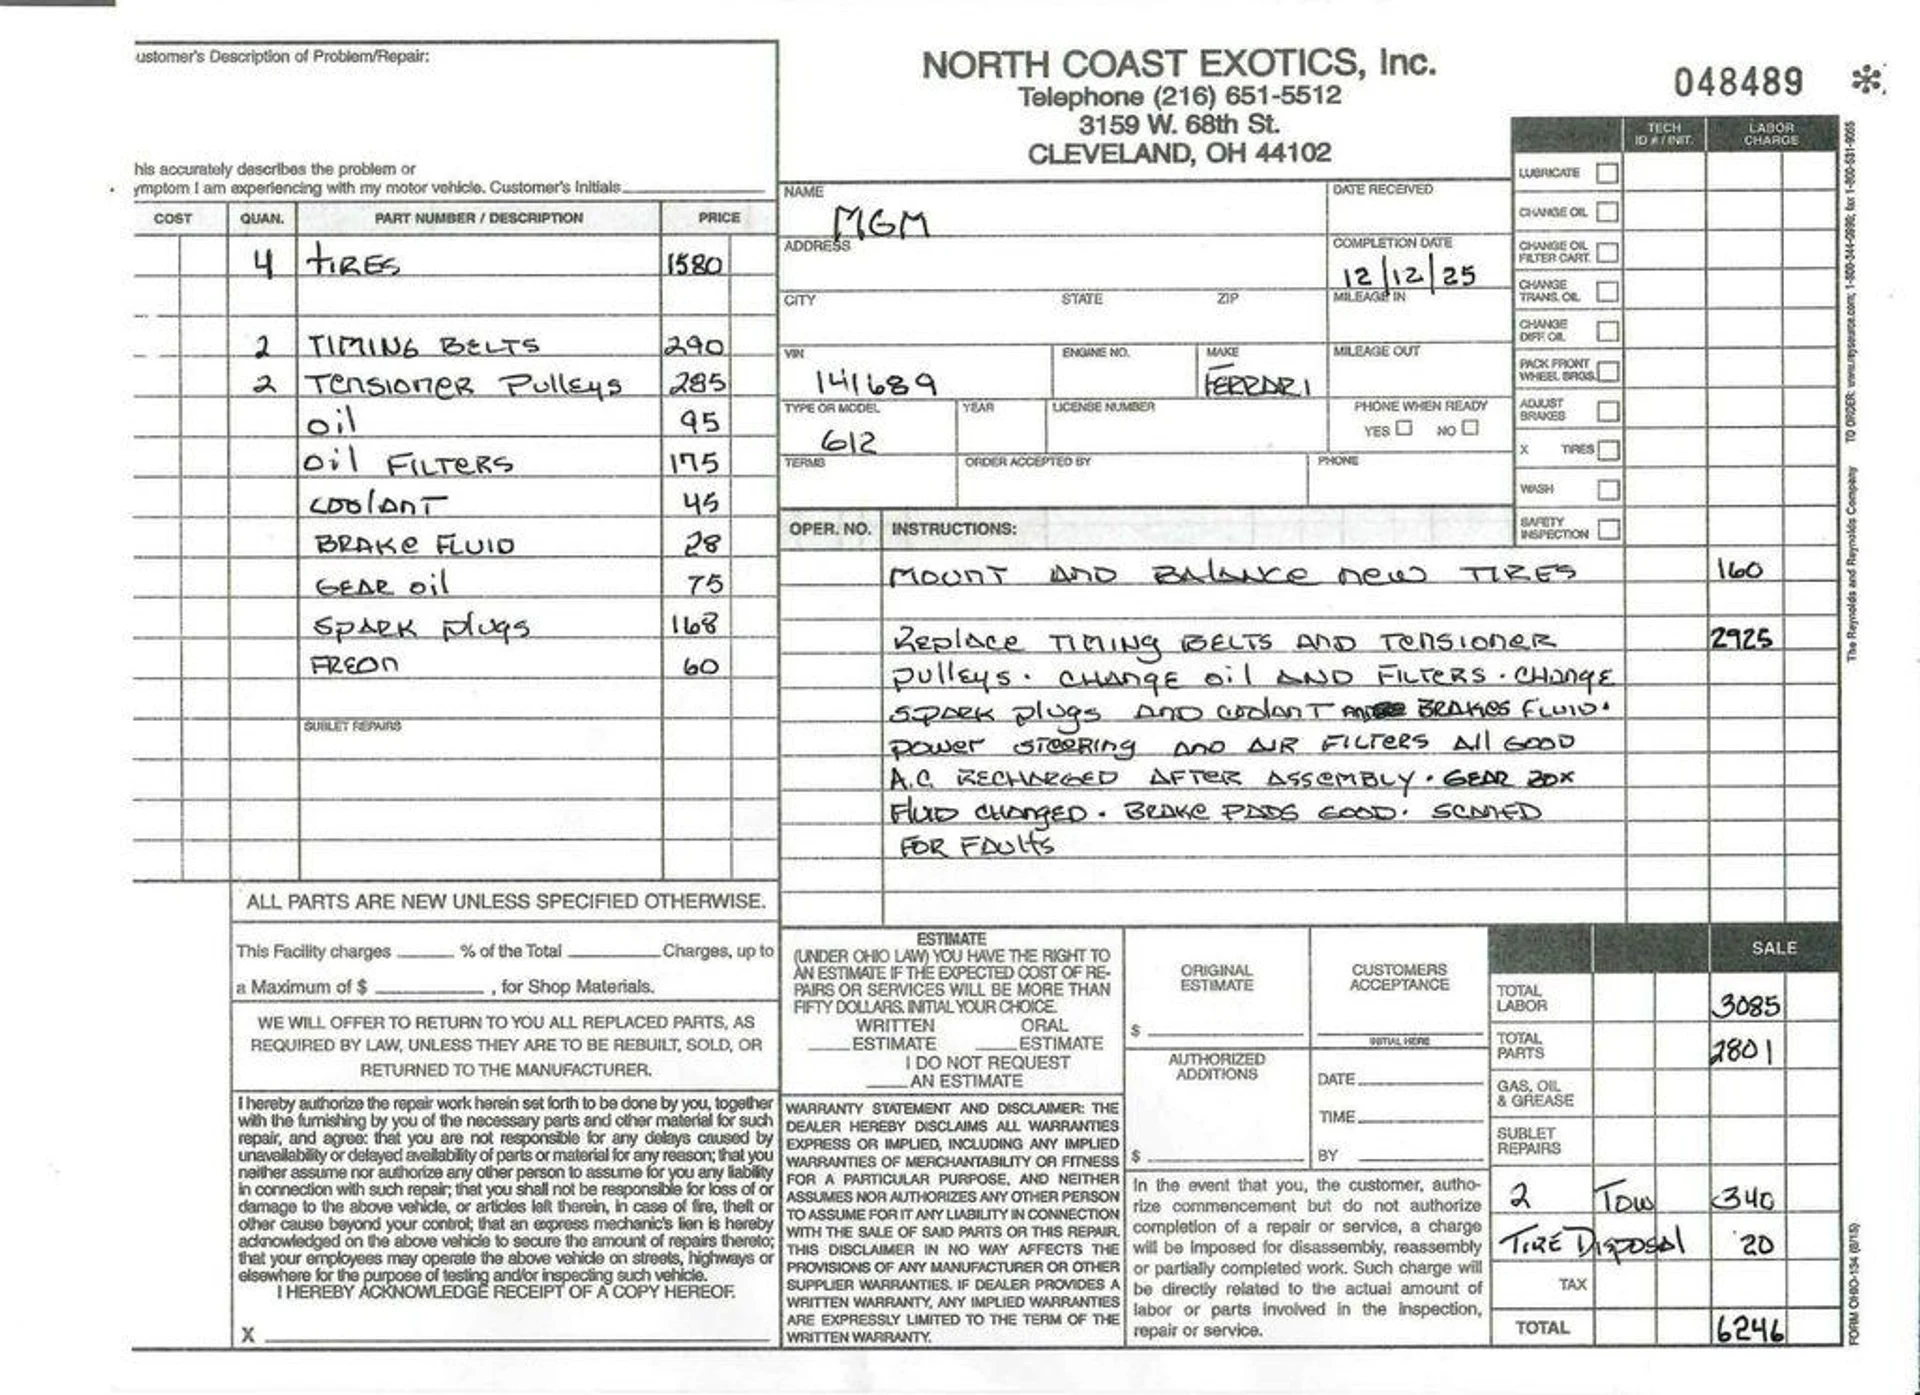 ustomer's Description of Problem/Repair:
his accurately describes the problem or
ymptom I am experiencing with my motor vehicle. Customer's Initials
COST QUAN. PART NUMBER / DESCRIPTION PRICE
4 TIRES 1580
2 TIMING BELTS 290
2 TENSIONER PULLEYS 285
OIL 95
OIL FILTERS 175
COOLANT 45
BRAKE FLUID 28
GEAR OIL 75
SPARK PLUGS 168
FREON 60
SUBLET REPAIRS
ALL PARTS ARE NEW UNLESS SPECIFIED OTHERWISE.
This Facility charges % of the Total Charges, up to
a Maximum of $ , for Shop Materials.
WE WILL OFFER TO RETURN TO YOU ALL REPLACED PARTS, AS
REQUIRED BY LAW, UNLESS THEY ARE TO BE REBUILT, SOLD, OR
RETURNED TO THE MANUFACTURER.
I hereby authorize the repair work herein set forth to be done by you, together
with the furnishing by you of the necessary parts and other material for such
repair, and agree: that you are not responsible for any delays caused by
unavailability or delayed availability of parts or material for any reason; that you
neither assume nor authorize any other person to assume for you any liability
in connection with such repair; that you shall not be responsible for loss of or
damage to the above vehicle, or articles left therein, in case of fire, theft or
other cause beyond your control; that an express mechanic's lien is hereby
acknowledged on the above vehicle to secure the amount of repairs thereto;
that your employees may operate the above vehicle on streets, highways or
elsewhere for the purpose of testing and/or inspecting such vehicle.
I HEREBY ACKNOWLEDGE RECEIPT OF A COPY HEREOF.
X
NORTH COAST EXOTICS, Inc.
Telephone (216) 651-5512
3159 W. 68th St.
CLEVELAND, OH 44102
048489 *
NAME MGM DATE RECEIVED
ADDRESS COMPLETION DATE 12/12/25
CITY STATE ZIP MILEAGE IN
VIN 141689 ENGINE NO. MAKE FERRARI MILEAGE OUT
TYPE OR MODEL 612 YEAR LICENSE NUMBER PHONE WHEN READY
YES NO
TERMS ORDER ACCEPTED BY PHONE
TECH ID # / INIT. LABOR CHARGE
LUBRICATE
CHANGE OIL
CHANGE OIL FILTER CART.
CHANGE TRANS. OIL
CHANGE DIFF. OIL
PACK FRONT WHEEL BRGS.
ADJUST BRAKES
X TIRES
WASH
SAFETY INSPECTION
OPER. NO. INSTRUCTIONS:
MOUNT AND BALANCE NEW TIRES 160
REPLACE TIMING BELTS AND TENSIONER 2925
PULLEYS. CHANGE OIL AND FILTERS. CHANGE
SPARK PLUGS AND COOLANT BRAKES FLUID.
POWER STEERING AND AIR FILTERS ALL GOOD
A.C. RECHARGED AFTER ASSEMBLY. GEAR BOX
FLUID CHANGED. BRAKE PADS GOOD. SCANED
FOR FAULTS
ESTIMATE
(UNDER OHIO LAW) YOU HAVE THE RIGHT TO
AN ESTIMATE IF THE EXPECTED COST OF RE-
PAIRS OR SERVICES WILL BE MORE THAN
FIFTY DOLLARS. INITIAL YOUR CHOICE.
WRITTEN ORAL
ESTIMATE ESTIMATE
I DO NOT REQUEST
AN ESTIMATE
WARRANTY STATEMENT AND DISCLAIMER: THE
DEALER HEREBY DISCLAIMS ALL WARRANTIES
EXPRESS OR IMPLIED, INCLUDING ANY IMPLIED
WARRANTIES OF MERCHANTABILITY OR FITNESS
FOR A PARTICULAR PURPOSE, AND NEITHER
ASSUMES NOR AUTHORIZES ANY OTHER PERSON
TO ASSUME FOR IT ANY LIABILITY IN CONNECTION
WITH THE SALE OF SAID PARTS OR THIS REPAIR.
THIS DISCLAIMER IN NO WAY AFFECTS THE
PROVISIONS OF ANY MANUFACTURER OR OTHER
SUPPLIER WARRANTIES. IF DEALER PROVIDES A
WRITTEN WARRANTY, ANY IMPLIED WARRANTIES
ARE EXPRESSLY LIMITED TO THE TERM OF THE
WRITTEN WARRANTY.
ORIGINAL ESTIMATE
$
AUTHORIZED ADDITIONS
$
CUSTOMERS ACCEPTANCE
INITIAL HERE
DATE
TIME
BY
In the event that you, the customer, autho-
rize commencement but do not authorize
completion of a repair or service, a charge
will be imposed for disassembly, reassembly
or partially completed work. Such charge will
be directly related to the actual amount of
labor or parts involved in the inspection,
repair or service.
SALE
TOTAL LABOR 3085
TOTAL PARTS 2801
GAS, OIL & GREASE
SUBLET REPAIRS
2 TOW 340
TIRE DISPOSAL 20
TAX
TOTAL 6246
The Reynolds and Reynolds Company TO ORDER: www.reysource.com; 1-800-344-0996; fax 1-800-531-9055
FORM OHIO-134 (8/15)